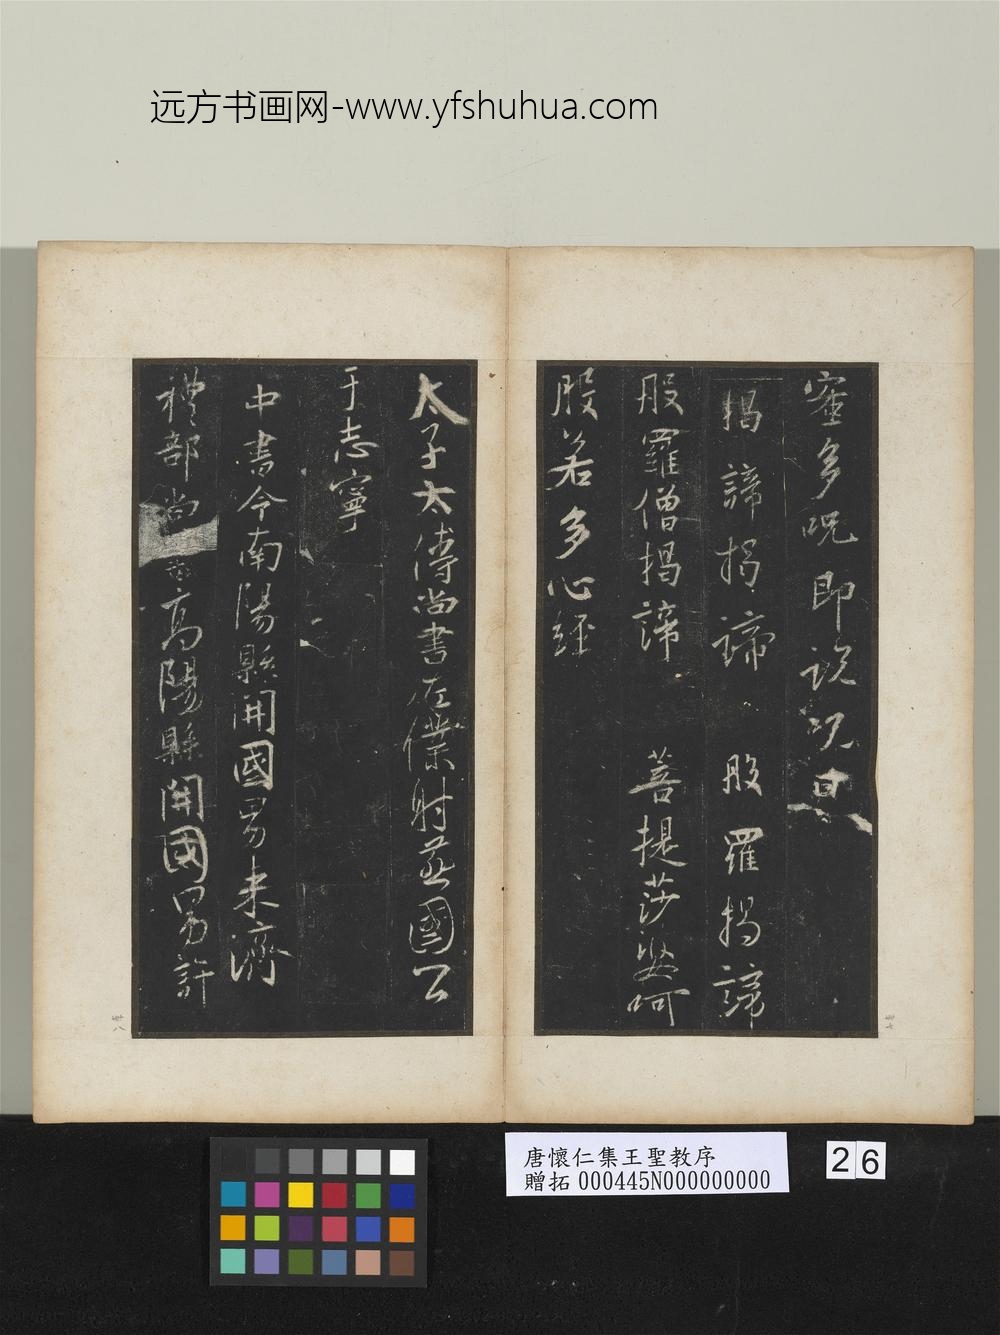 远方书画网-www.yfshuhua.com
蜜多呪即說呪曰
揭諦揭諦 般羅揭諦
般羅僧揭諦 菩提莎婆呵
般若多心經
太子太傅尚書左僕射燕國公
于志寧
中書令南陽縣開國男来濟
禮部尚書高陽縣開國男許
唐懷仁集王聖教序
贈拓 000445N000000000
26